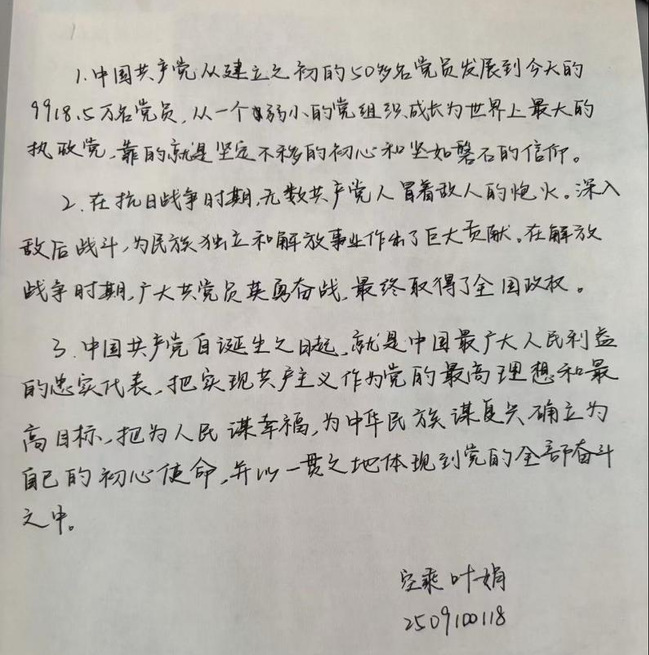 1.中国共产党从建立之初的50多名党员发展到今天的
9918.5万名党员,从一个弱小的党组织成长为世界上最大的
执政党,靠的就是坚定不移的初心和坚如磐石的信仰。
2.在抗日战争时期,无数共产党人冒着敌人的炮火。深入
敌后战斗,为民族独立和解放事业作出了巨大贡献。在解放
战争时期,广大共党员英勇奋战,最终取得了全国政权。
3.中国共产党自诞生之日起,就是中国最广大人民利益
的忠实代表,把实现共产主义作为党的最高理想和最
高目标,把为人民谋幸福,为中华民族谋复兴确立为
自己的初心使命,并以一贯之地体现到党的全部奋斗
之中。
空乘 叶娟
2509100118